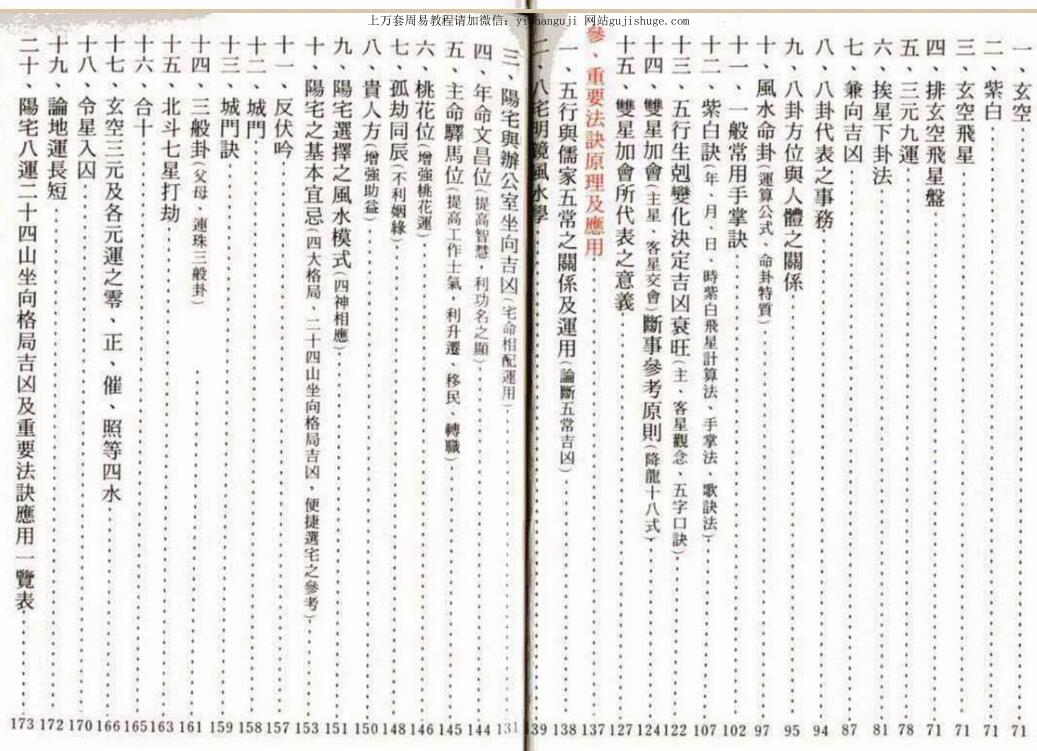 上万套周易教程请加微信：yishanguji 网站gujishuge.com
一、玄空 71
二、紫白 71
三、玄空飛星 71
四、排玄空飛星盤 71
五、三元九運 78
六、挨星下卦法 81
七、兼向吉凶 87
八、八卦代表之事務 94
九、八卦方位與人體之關係 95
十、風水命卦(運算公式、命卦特質) 97
十一、一般常用手掌訣 102
十二、紫白訣(年、月、日、時紫白飛星計算法、手掌法、歌訣法) 107
十三、五行生剋變化決定吉凶衰旺(主、客星觀念、五字口訣) 122
十四、雙星加會(主星、客星交會)斷事參考原則(降龍十八式) 124
十五、雙星加會所代表之意義 127
參、重要法訣原理及應用 137
一、五行與儒家五常之關係及運用(論斷五常吉凶) 138
二、八宅明鏡風水學 139
三、陽宅與辦公室坐向吉凶(宅命相配運用) 131
四、年命文昌位(提高智慧，利功名之顯) 144
五、主命驛馬位(提高工作士氣，利升遷、移民、轉職) 145
六、桃花位(增強桃花運) 146
七、孤劫同辰(不利姻緣) 148
八、貴人方(增強助益) 150
九、陽宅選擇之風水模式(四神相應) 151
十、陽宅之基本宜忌(四大格局、二十四山坐向格局吉凶，便捷選宅之參考) 153
十一、反伏吟 157
十二、城門 158
十三、城門訣 159
十四、三般卦(父母、連珠三般卦) 161
十五、北斗七星打劫 163
十六、合十 165
十七、玄空三元及各元運之零、正、催、照等四水 166
十八、令星入囚 170
十九、論地運長短 172
二十、陽宅八運二十四山坐向格局吉凶及重要法訣應用一覽表 173